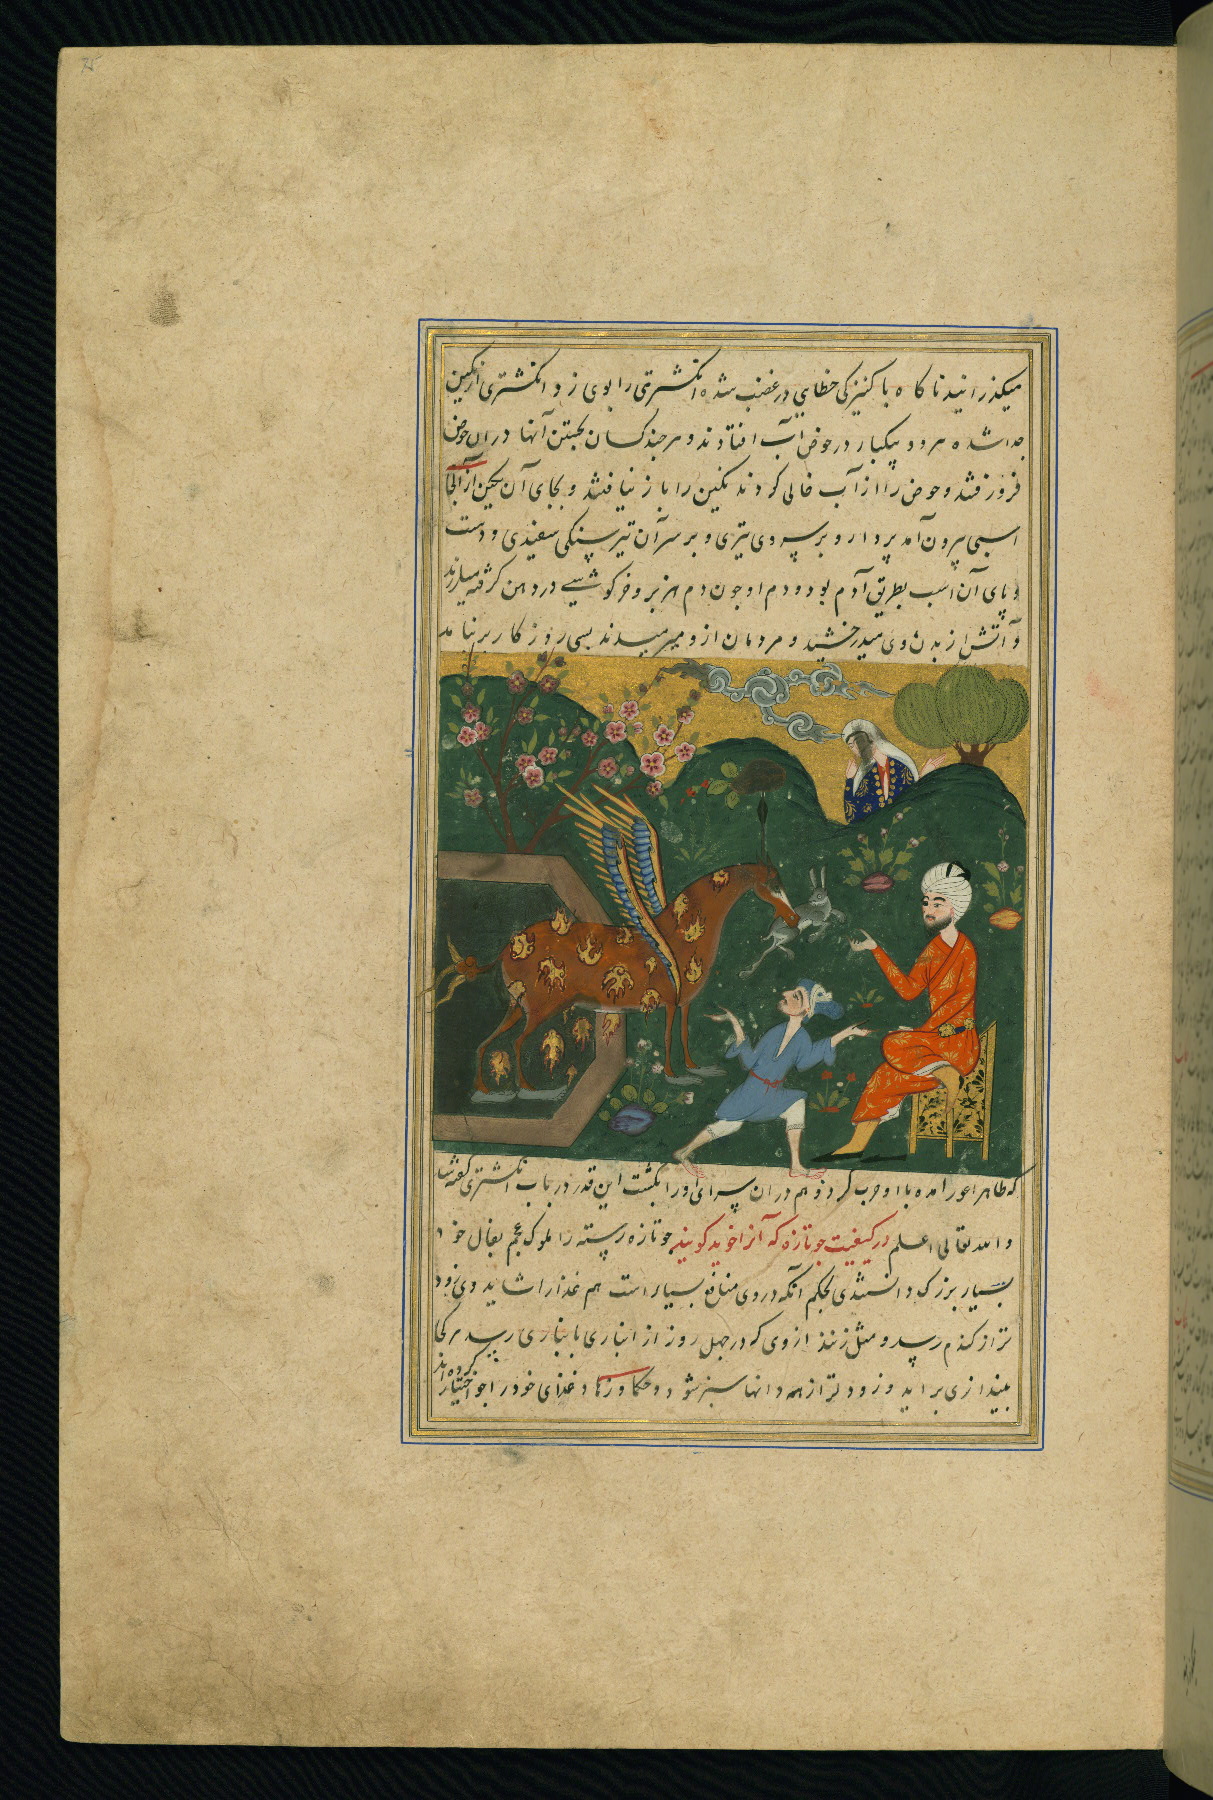 میکذرانید ناکاه با کنیزکی خطایی در غضب شده انکشتری را بوی زد انکشتری از نکین
جدا شده هر دو بیکبار در حوض آب افتادند و هرچند کسان بجستن آنها در آن حوض
فرو رفتند و حوض را از آب خالی کردند نکین را باز نیافتند و بجای آن نکین از آنجا
اسبی بیرون آمد پردار و بر سر وی تیری و بر سر آن تیر سنکی سفیدی و دست
و پای آن اسب بطریق آدم بود و دم او چون دم هزبر و خرکوشی در دهن کرفته میلرزید
و آتش از بدن وی میدرخشید و مردمان از و میرمیدند بسی روزکار برنیامد
که طاهر اعور آمده با او حرب کرد و هم در آن سرای او را بکشت این قدر در باب انکشتری کفته شد
و الله تعالی اعلم در کیفیت جو تازه که آنرا خوید کویند جو تازه رسته را ملوک عجم بفال خود
بسیار بزرک دانستندی بحکم آنکه در وی منافع بسیار است هم غذا را شاید وی زود
تر از کندم رسد و مثل زنند از وی که در چهل روز از انباری بانباری رسد هر کجا
بیندازی برآید و زودتر از همه دانها سبز شود و حکما و زهاد غذای خود را جو اختیار کرده‌اند